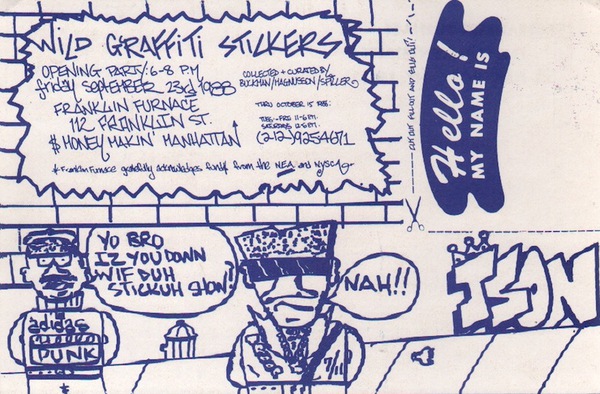 WILD GRAFFITI STICKERS
OPENING PARTY: 6-8 P.M
friday SEPTEMBER 23rd 1988
FRANKLIN FURNACE
112 FRANKLIN ST.
$ MONEY MAKIN' MANHATTAN
COLLECTED + CURATED BY
BUCKMAN/MAGNUSSON/SPILLER
THRU OCTOBER 15 1988.
TUES-FRI 11-6 P.M.
SATURDAY 12-5 P.M.
(212) 9254671
* Franklin Furnace gratefully acknowledges funds from the NEA and NYSCA
CUT OUT FILL-OUT AND
Hello!
MY NAME IS
YO BRO
IZ YOU DOWN
WIF DUH
STICKUH SHOW?
NAH!!
adidas
PUNK
7/11